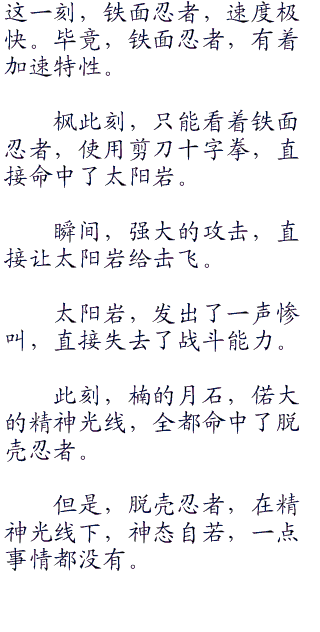 这一刻，铁面忍者，速度极
快。毕竟，铁面忍者，有着
加速特性。
枫此刻，只能看着铁面
忍者，使用剪刀十字拳，直
接命中了太阳岩。
瞬间，强大的攻击，直
接让太阳岩给击飞。
太阳岩，发出了一声惨
叫，直接失去了战斗能力。
此刻，楠的月石，偌大
的精神光线，全都命中了脱
壳忍者。
但是，脱壳忍者，在精
神光线下，神态自若，一点
事情都没有。